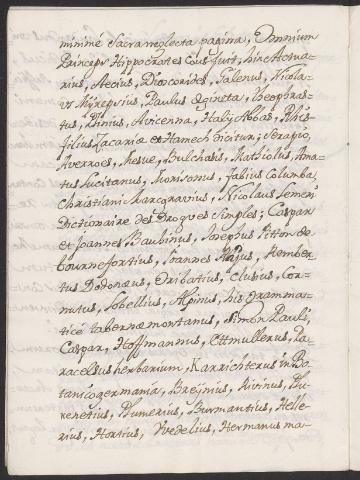 minimè Sacra neglecta pagina, Omnium
Princeps Hippocrates Cous fuit, hinc Actua-
rius, Aecius, Dioscorides, Galenus, Nicola-
us Mirepsius, Paulus Egineta, Theophras-
tus, Plinius, Avicenna, Haly Abbas, Rhis-
filius Zacariae et Hamech dicitur; Serapio,
Averroes, Mesue, Bulchasis, Mathiolus, Ama-
tus Lucitanus, Morisonus, fabius Columba,
Christianus Marcgravius, Nicolaus Lemeri
Dictionaire des Drogues Simples; Caspar
et Joannes Bauhinus, Josephus Pitton de
bournefortius, Joannes Rajus, Rember
tus Dodonaus, Oribatius, Clusius, Cor-
nutus, Lobellius, Alpinus, his Gramma-
ticè tabernemontanus, Simon Pauli,
Caspar, Hoffmannus, Ettmullerus, Pa-
racelsus herbarium, Karrichterus in Bo-
tanico germania, Breinius, Rivinus, Plu-
kenetius, Plumerius, Burmantius, Helle-
rius, Hortius, Vvedelius, Hermanus ma-